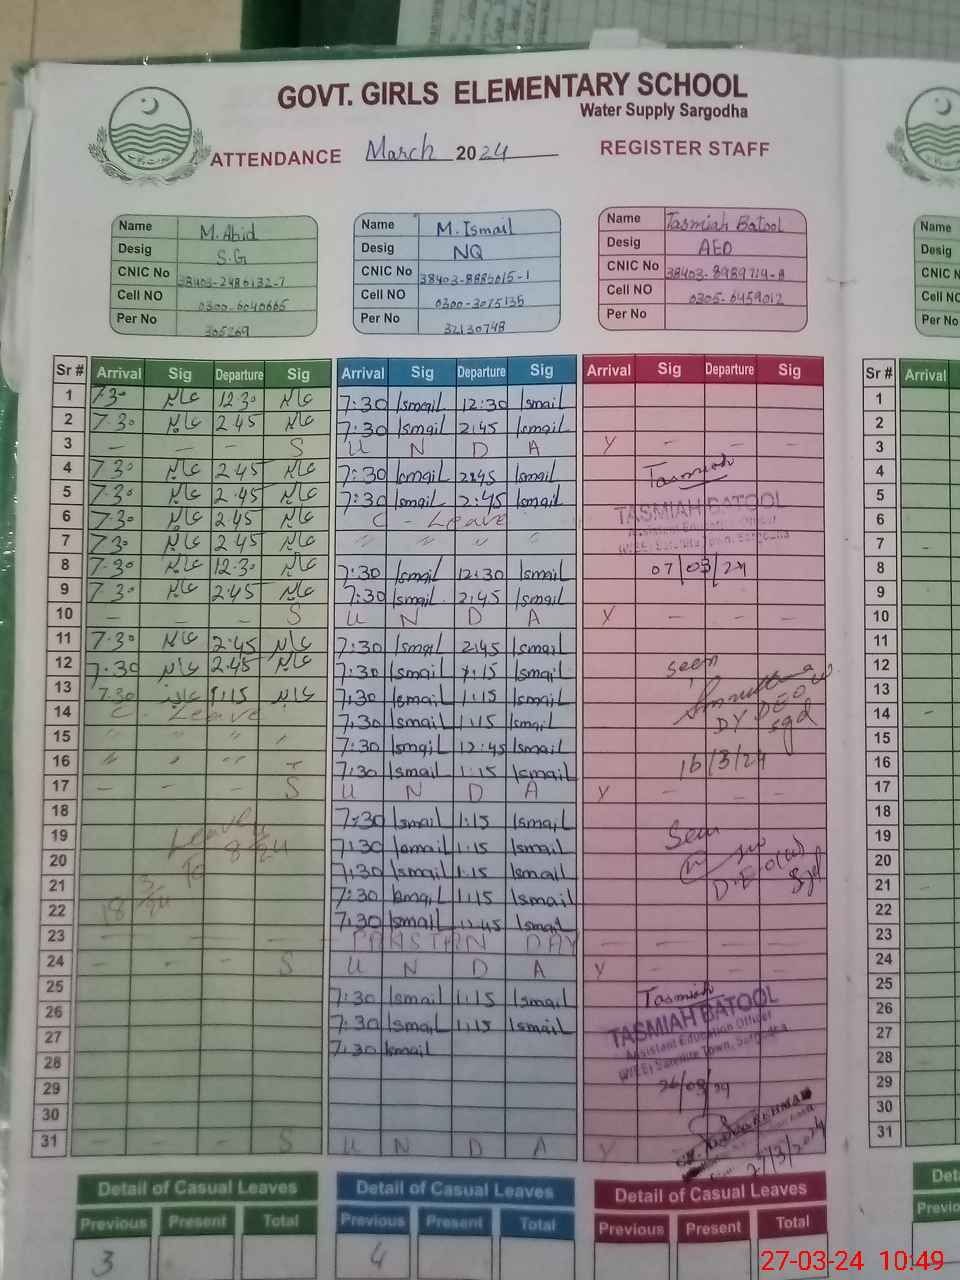 GOVT. GIRLS ELEMENTARY SCHOOL
Water Supply Sargodha
ATTENDANCE March 2024 REGISTER STAFF
Name M. Abid Name M. Ismail Name Tasmiah Batool
Desig S.G Desig NQ Desig AEO
CNIC No 38403-2486132-7 CNIC No 38403-8886615-1 CNIC No 38403-8989719-8
Cell NO 0300-6040665 Cell NO 0300-3075135 Cell NO 0305-6459012
Per No 305269 Per No 32130748 Per No
Sr # Arrival Sig Departure Sig Arrival Sig Departure Sig Arrival Sig Departure Sig Sr # Arrival
1 7 30 عابد 12 30 عابد 7:30 Ismail 12:30 Ismail 1
2 7.30 عابد 2.45 عابد 7:30 Ismail 2:45 Ismail 2
3 — — — S U N D A Y — — — 3
4 7.30 عابد 2.45 عابد 7:30 Ismail 2:45 Ismail Tasmiah 4
5 7.30 عابد 2.45 عابد 7:30 Ismail 2:45 Ismail TASMIAH BATOOL 5
6 7.30 عابد 2.45 عابد C - Leave Assistant Education Officer 6
7 7.30 عابد 2.45 عابد " " " " (WEE) Satellite Town, Sargodha 7
8 7.30 عابد 12.30 عابد 7:30 Ismail 12:30 Ismail 07/03/24 8
9 7.30 عابد 2.45 عابد 7:30 Ismail 2:45 Ismail 9
10 — — — S U N D A Y — — — 10
11 7.30 عابد 2.45 عابد 7:30 Ismail 2:45 Ismail 11
12 7.30 عابد 2.45 عابد 7:30 Ismail 1:15 Ismail seen 12
13 7.30 عابد 1.15 عابد 7:30 Ismail 1:15 Ismail 13
14 C - Leave 7:30 Ismail 1:15 Ismail DY DEO W 14
15 " " " " 7:30 Ismail 12:45 Ismail sgd 15
16 " " " 7:30 Ismail 1:15 Ismail 16/3/24 16
17 — — — S U N D A Y — — — 17
18 7:30 Ismail 1:15 Ismail 18
19 Leave 7:30 Ismail 1:15 Ismail Seen 19
20 To 8/24 7:30 Ismail 1:15 Ismail D.E.O(W) 20
21 7:30 Ismail 1:15 Ismail Sgd 21
22 18 3/24 7:30 Ismail 12:45 Ismail 22
23 — — — — PAKSTAN DAY — — — — 23
24 — — — S U N D A Y — — — 24
25 7:30 Ismail 1:15 Ismail Tasmiah 25
26 7:30 Ismail 1:15 Ismail TASMIAH BATOOL 26
27 7:30 Ismail Assistant Education Officer 27
28 (WEE) Satellite Town, Sargodha 28
29 26/03/24 29
30 30
31 — — — S U N D A Y 27/3/2024 31
Detail of Casual Leaves Detail of Casual Leaves Detail of Casual Leaves
Previous Present Total Previous Present Total Previous Present Total
3 4
27-03-24 10:49